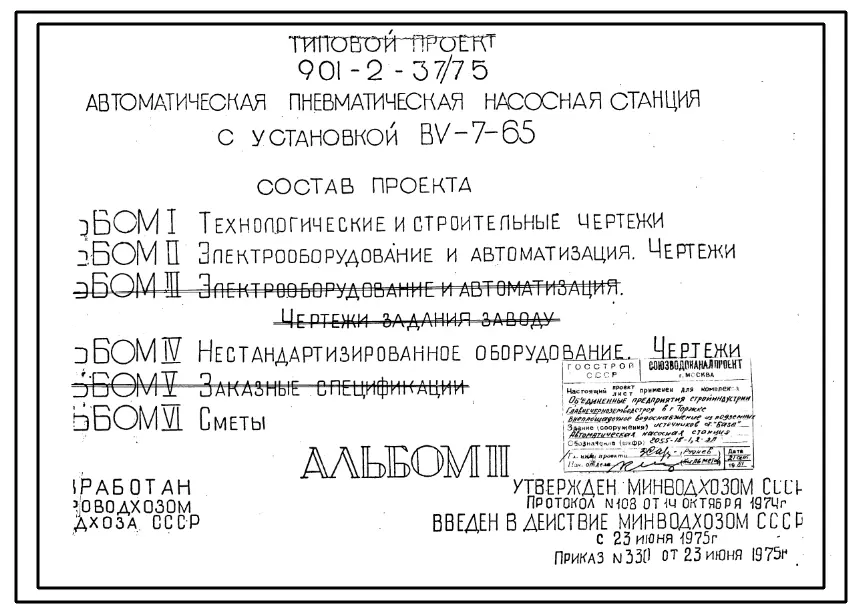 ТИПОВОЙ ПРОЕКТ
901-2-37/75
АВТОМАТИЧЕСКАЯ ПНЕВМАТИЧЕСКАЯ НАСОСНАЯ СТАНЦИЯ
С УСТАНОВКОЙ BV-7-65
СОСТАВ ПРОЕКТА
ЬБОМ I ТЕХНОЛОГИЧЕСКИЕ И СТРОИТЕЛЬНЫЕ ЧЕРТЕЖИ
ЬБОМ II ЭЛЕКТРООБОРУДОВАНИЕ И АВТОМАТИЗАЦИЯ. ЧЕРТЕЖИ
ЬБОМ III ЭЛЕКТРООБОРУДОВАНИЕ И АВТОМАТИЗАЦИЯ.
ЧЕРТЕЖИ ЗАДАНИЯ ЗАВОДУ
ЬБОМ IV НЕСТАНДАРТИЗИРОВАННОЕ ОБОРУДОВАНИЕ. ЧЕРТЕЖИ
ЬБОМ V ЗАКАЗНЫЕ СПЕЦИФИКАЦИИ
ЬБОМ VI СМЕТЫ
ГОССТРОЙ СССР
СОЮЗВОДОКАНАЛПРОЕКТ
г. МОСКВА
Настоящий проект лист применен для комплекса
Объединенные предприятия стройиндустрии
Главнечерноземводстроя в г Торжке
Внеплощадочное водоснабжение из подземных
Здание (сооружение) источников "База"
Автоматическая насосная станция
Обозначение (шифр)
Гл. инж. проекта
Нач. отдела
Дата
АЛЬБОМ III
РАБОТАН
ОВОДХОЗОМ
ДХОЗА СССР
УТВЕРЖДЕН МИНВОДХОЗОМ СССР
ПРОТОКОЛ N108 ОТ 14 ОКТЯБРЯ 1974г
ВВЕДЕН В ДЕЙСТВИЕ МИНВОДХОЗОМ СССР
С 23 ИЮНЯ 1975г
ПРИКАЗ N330 ОТ 23 ИЮНЯ 1975г